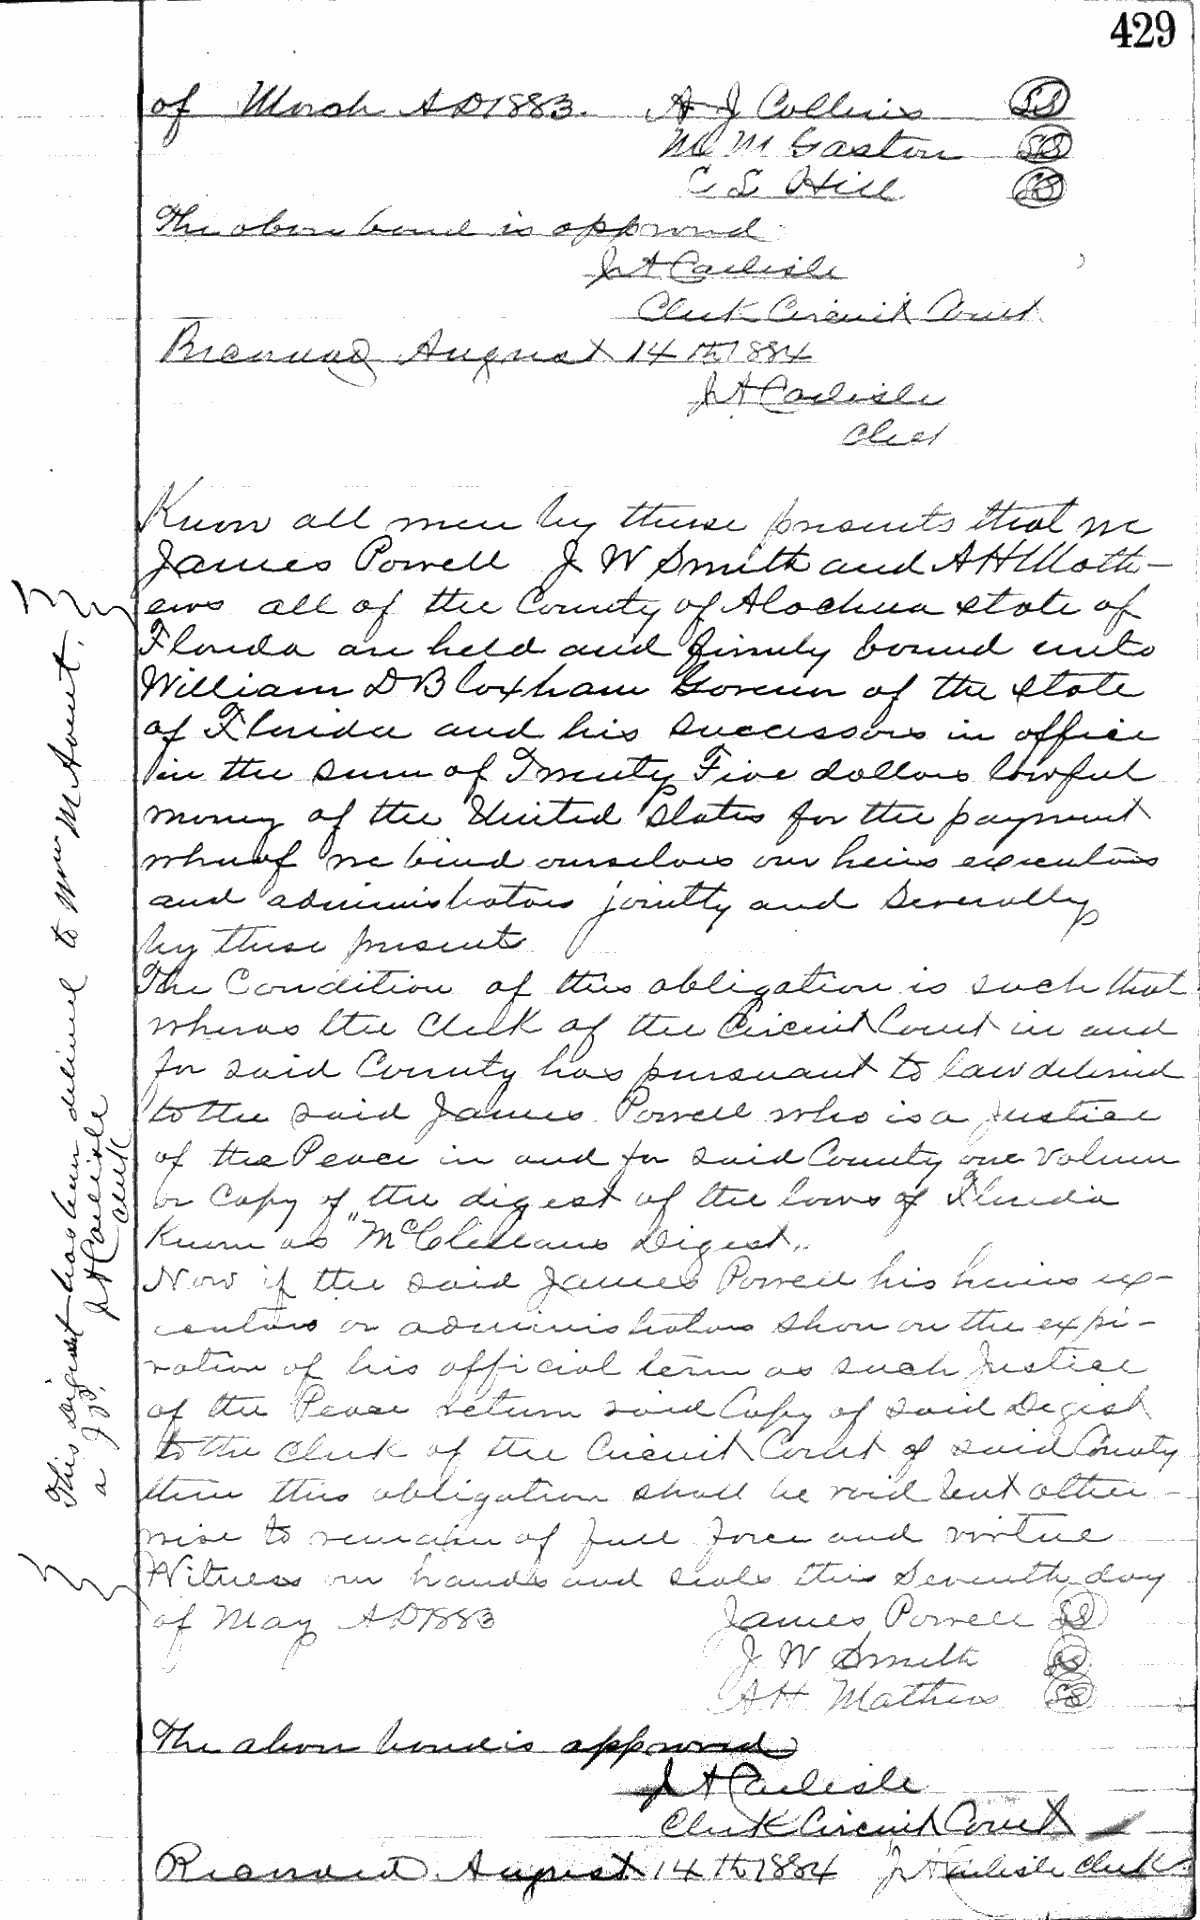 429
of March AD 1883. A J Collins LS
M M Gaston LS
C L Hill LS
The above bond is approved
J A Carlisle
Clerk Circuit Court
Recorded August 14th 1884
J A Carlisle
Clerk
Know all men by these presents that we
James Powell J W Smith and A H Math-
ews all of the County of Alachua state of
Florida are held and firmly bound unto
William D Bloxham Governor of the state
of Florida and his successors in office
in the sum of Twenty Five dollars lawful
money of the United States for the payment
whereof we bind ourselves our heirs executors
and administrators jointly and severally
by these present
The Condition of this obligation is such that
whereas the Clerk of the Circuit Court in and
for said County has pursuant to law delivered
to the said James Powell who is a Justice
of the Peace in and for said County one Volume
or Copy of the digest of the laws of Florida
Known as "McClellans Digest"
Now if the said James Powell his heirs ex-
ecutors or administrators shall on the expi-
ration of his official term as such Justice
of the Peace return said Copy of said Digest
to the Clerk of the Circuit Court of said County
then this obligation shall be void but other-
wise to remain of full force and virtue
Witness our hands and seals this Seventh day
of May AD 1883 James Powell LS
J W Smith LS
A H Mathews LS
The above bond is approved
J A Carlisle
Clerk Circuit Court
Recorded August 14th 1884 J A Carlisle Clerk
This Digest has been delivered to Wm M Avent.
a J.P. J A Carlisle
Clerk